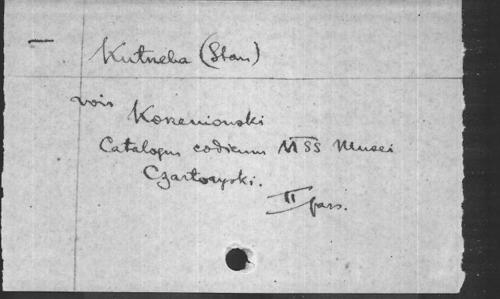 — Kutneba (Stan)
vois Korzeniowski
Catalogus codicum MSS Musei
Czartoryski.
II pars.